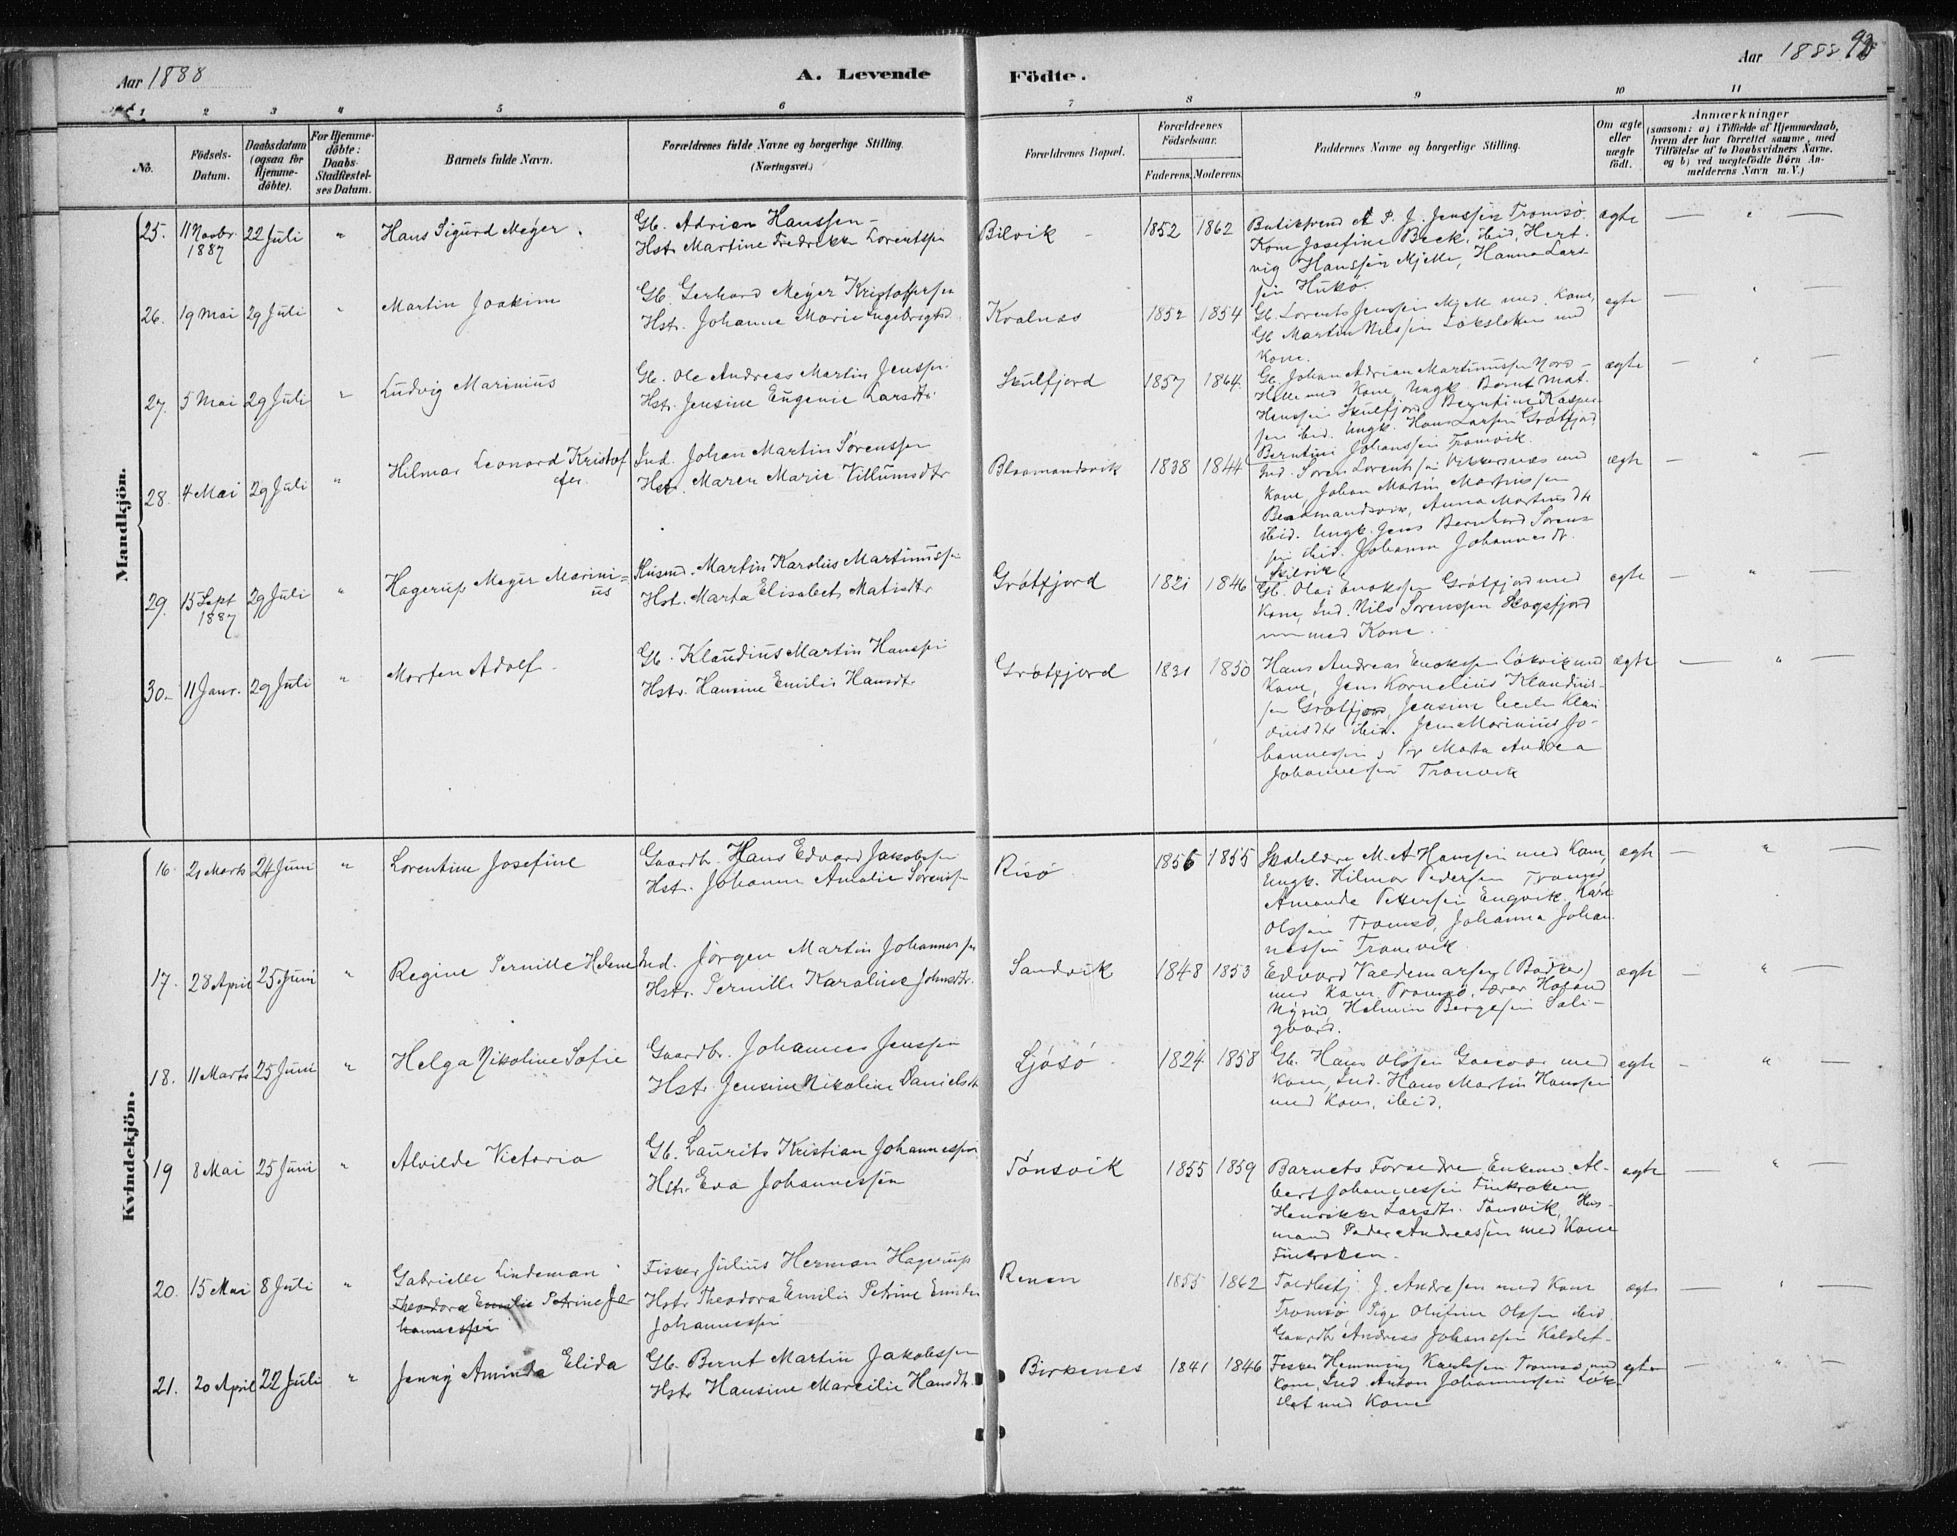 Aar 1888
A. Levende
Födte.
Aar 1888
92
1 2 3 4 5 6 7 8 9 10 11
No.
Födsels-Datum.
Daabsdatum (ogsaa for Hjemme-döbte).
For Hjemme-döbte: Daabs-Stadfæstel-ses Datum.
Barnets fulde Navn.
Forældrenes fulde Navne og borgerlige Stilling. (Næringsvei.)
Forældrenes Bopæl.
Forældrenes Födselsaar.
Faderens. Moderens.
Faddernes Navne og borgerlige Stilling.
Om ægte eller uægte födt.
Anmærkninger
(saasom: a) i Tilfælde af Hjemmedaab,
hvem der har forrettet samme, med
Tilföielse af to Daabsvidners Navne.
og b) ved uægtefödte Börn An-
melderens Navn m. V.)
Mandkjön.
25. 11 Novbr. 1887 22 Juli " Hans Sigurd Meyer.
Gb. Adrian Hanssen
Hstr. Martine Fredrikke Lorentssen
Bilvik 1852 1862
A P. J. Jenssen Tromsø
Kone Josefine Beck, ibid, Hert-
vig Hanssen Mjelle, Hanna Lars-
sen
ægte
26. 19 Mai 29 Juli " Martin Joakim
Gb. Gerhard Meyer Kristoffersen
Hstr. Johanne Marie Ingebrigtsd.
Kvalnæs 1852 1854
Gb. Lorents Jenssen Mjelle med Kone,
Gb Martin Nilssen med
Kone.
ægte
27. 5 Mai 29 Juli " Ludvig Marinius
Gb. Ole Andreas Martin Jenssen
Hstr. Jensine Eugenie Larsdtr.
Skulfjord 1857 1864
Gb. Johan Adrian Martinussen Nord-
med Kone, Ungk. Bernt Mat.
Henssen Skulfjord, Berntine Kasper-
sen ibid. Ungk. Hans Larsen Grøtfjord,
Berntine Johanssen Tromvik.
ægte
28. 4 Mai 29 Juli " Hilmar Leonard Kristof
fer.
Ind. Johan Martin Sørenssen
Hstr. Maren Marie Villumsdtr
Blaamandsvik 1838 1844
Ind. Søren Lorentssen med
Kone, Johan Martin
Blaamandsvik, Anna Martinsdtr
ibid. Ungk. Jens Bernhard Sørens-
sen ibid. Johanna Johannesdt.
ægte
29. 15 Sept 1887 29 Juli " Hagerup Meyer Marini=
us
Husmd. Martin Karolius Martinussen
Hst. Marta Elisabet Matisdtr
Grøtfjord 1821 1846
Gb. Olai Enokssen Grøtfjord med
Kone, Ind. Nils Sørenssen Skogsfjord
med Kone.
ægte
30. 11 Janr. 29 Juli " Morten Adolf
Gb. Klaudius Martin Hanssen
Hstr. Hansine Emilie Hansdtr
Grøtfjord 1831 1850
Hans Andreas Enokssen Løkvik med
Kone, Jens Kornelius Klaudius-
sen Grøtfjord, Jensine Cecilie Klau
diusdtr ibid. Jens Marinius Jo-
hannessen, Pige Marta Andrea
Johannessen Tromvik
ægte
Kvindekjön.
16. 21 Marts 24 Juni " Lorentine Josefine
Gaardbr. Hans Edvard Jakobsen
Hstr. Johanne Amalie Sørenssen
Risø 1856 1855
Skolelærer M. A Hanssen med Kone,
Ungk. Hilmar Pedersen Tromsø
Amanda Pettersen Engvik,
Olssen Tromsø, Johanna Johan
nessen Tromvik.
ægte
17. 28 April 25 Juni " Regine Pernille Helene
Ind. Jørgen Martin Johannessen
Hstr. Pernille Karoline Johnsdtr.
Sandvik 1848 1853
Edvard Valdemarsen (Bødker)
med Kone Tromsø, Lærer
Helmin Bergesen Sali-
gaard.
ægte
18. 11 Marts 25 Juni " Helga Nikoline Sofie
Gaardbr. Johannes Jenssen
Hstr. Jensine Nikoline Danielsdt
Ljøsø 1824 1858
Gb. Hans Olssen Gaasvær med
Kone, Ind. Hans Martin Hanssen
med Kone, ibid.
ægte
19 8 Mai 25 Juni " Alvilde Victoria
Gb. Laurits Kristian Johannessen
Hstr. Eva Johannessen
Tønsvik 1855 1859
Barnets Forældre, Enkemd. Al-
bert Johannessen Finkroken
Henrikke Larsdtr. Tønsvik, Hus-
mand Peder Andreassen med Kone
Finkroken.
ægte
20. 15 Mai 8 Juli " Gabrielle Lindeman
Theodora Emilie Petrine Jo
hannessen
Fisker Julius Herman Hagerup
Hstr Theodora Emilie Petrine Emilie
Johannessen
Renen 1855 1862
Toldbetj. J. Andresen med Kone
Tromsø Pige Olufine Olssen ibid
Gaardbr Andreas Johanssen
ægte
21. 20 April 22 Juli " Jenny Aminda Elida
Gb. Bernt Martin Jakobssen
Hstr Hansine Marcilie Hansdtr.
Birkenes 1841 1846
Fisker Hemming Karlssen Tromsø med
Kone, Ind. Anton Johannessen
med Kone
ægte